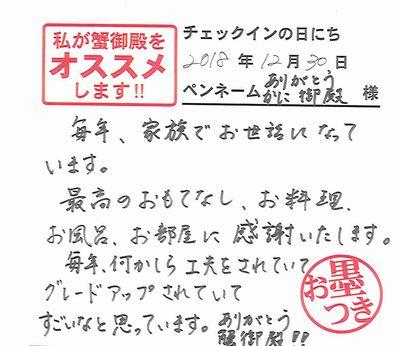 私が蟹御殿を
オススメ
します!!
チェックインの日にち
2018年12月30日
ペンネーム ありがとう かに御殿 様
毎年、家族でお世話になって
います。
最高のおもてなし、お料理、
お風呂、お部屋に感謝いたします。
毎年、何かしら工夫をされていて
グレードアップされていて
すごいなと思っています。ありがとう
蟹御殿!!
お墨つき